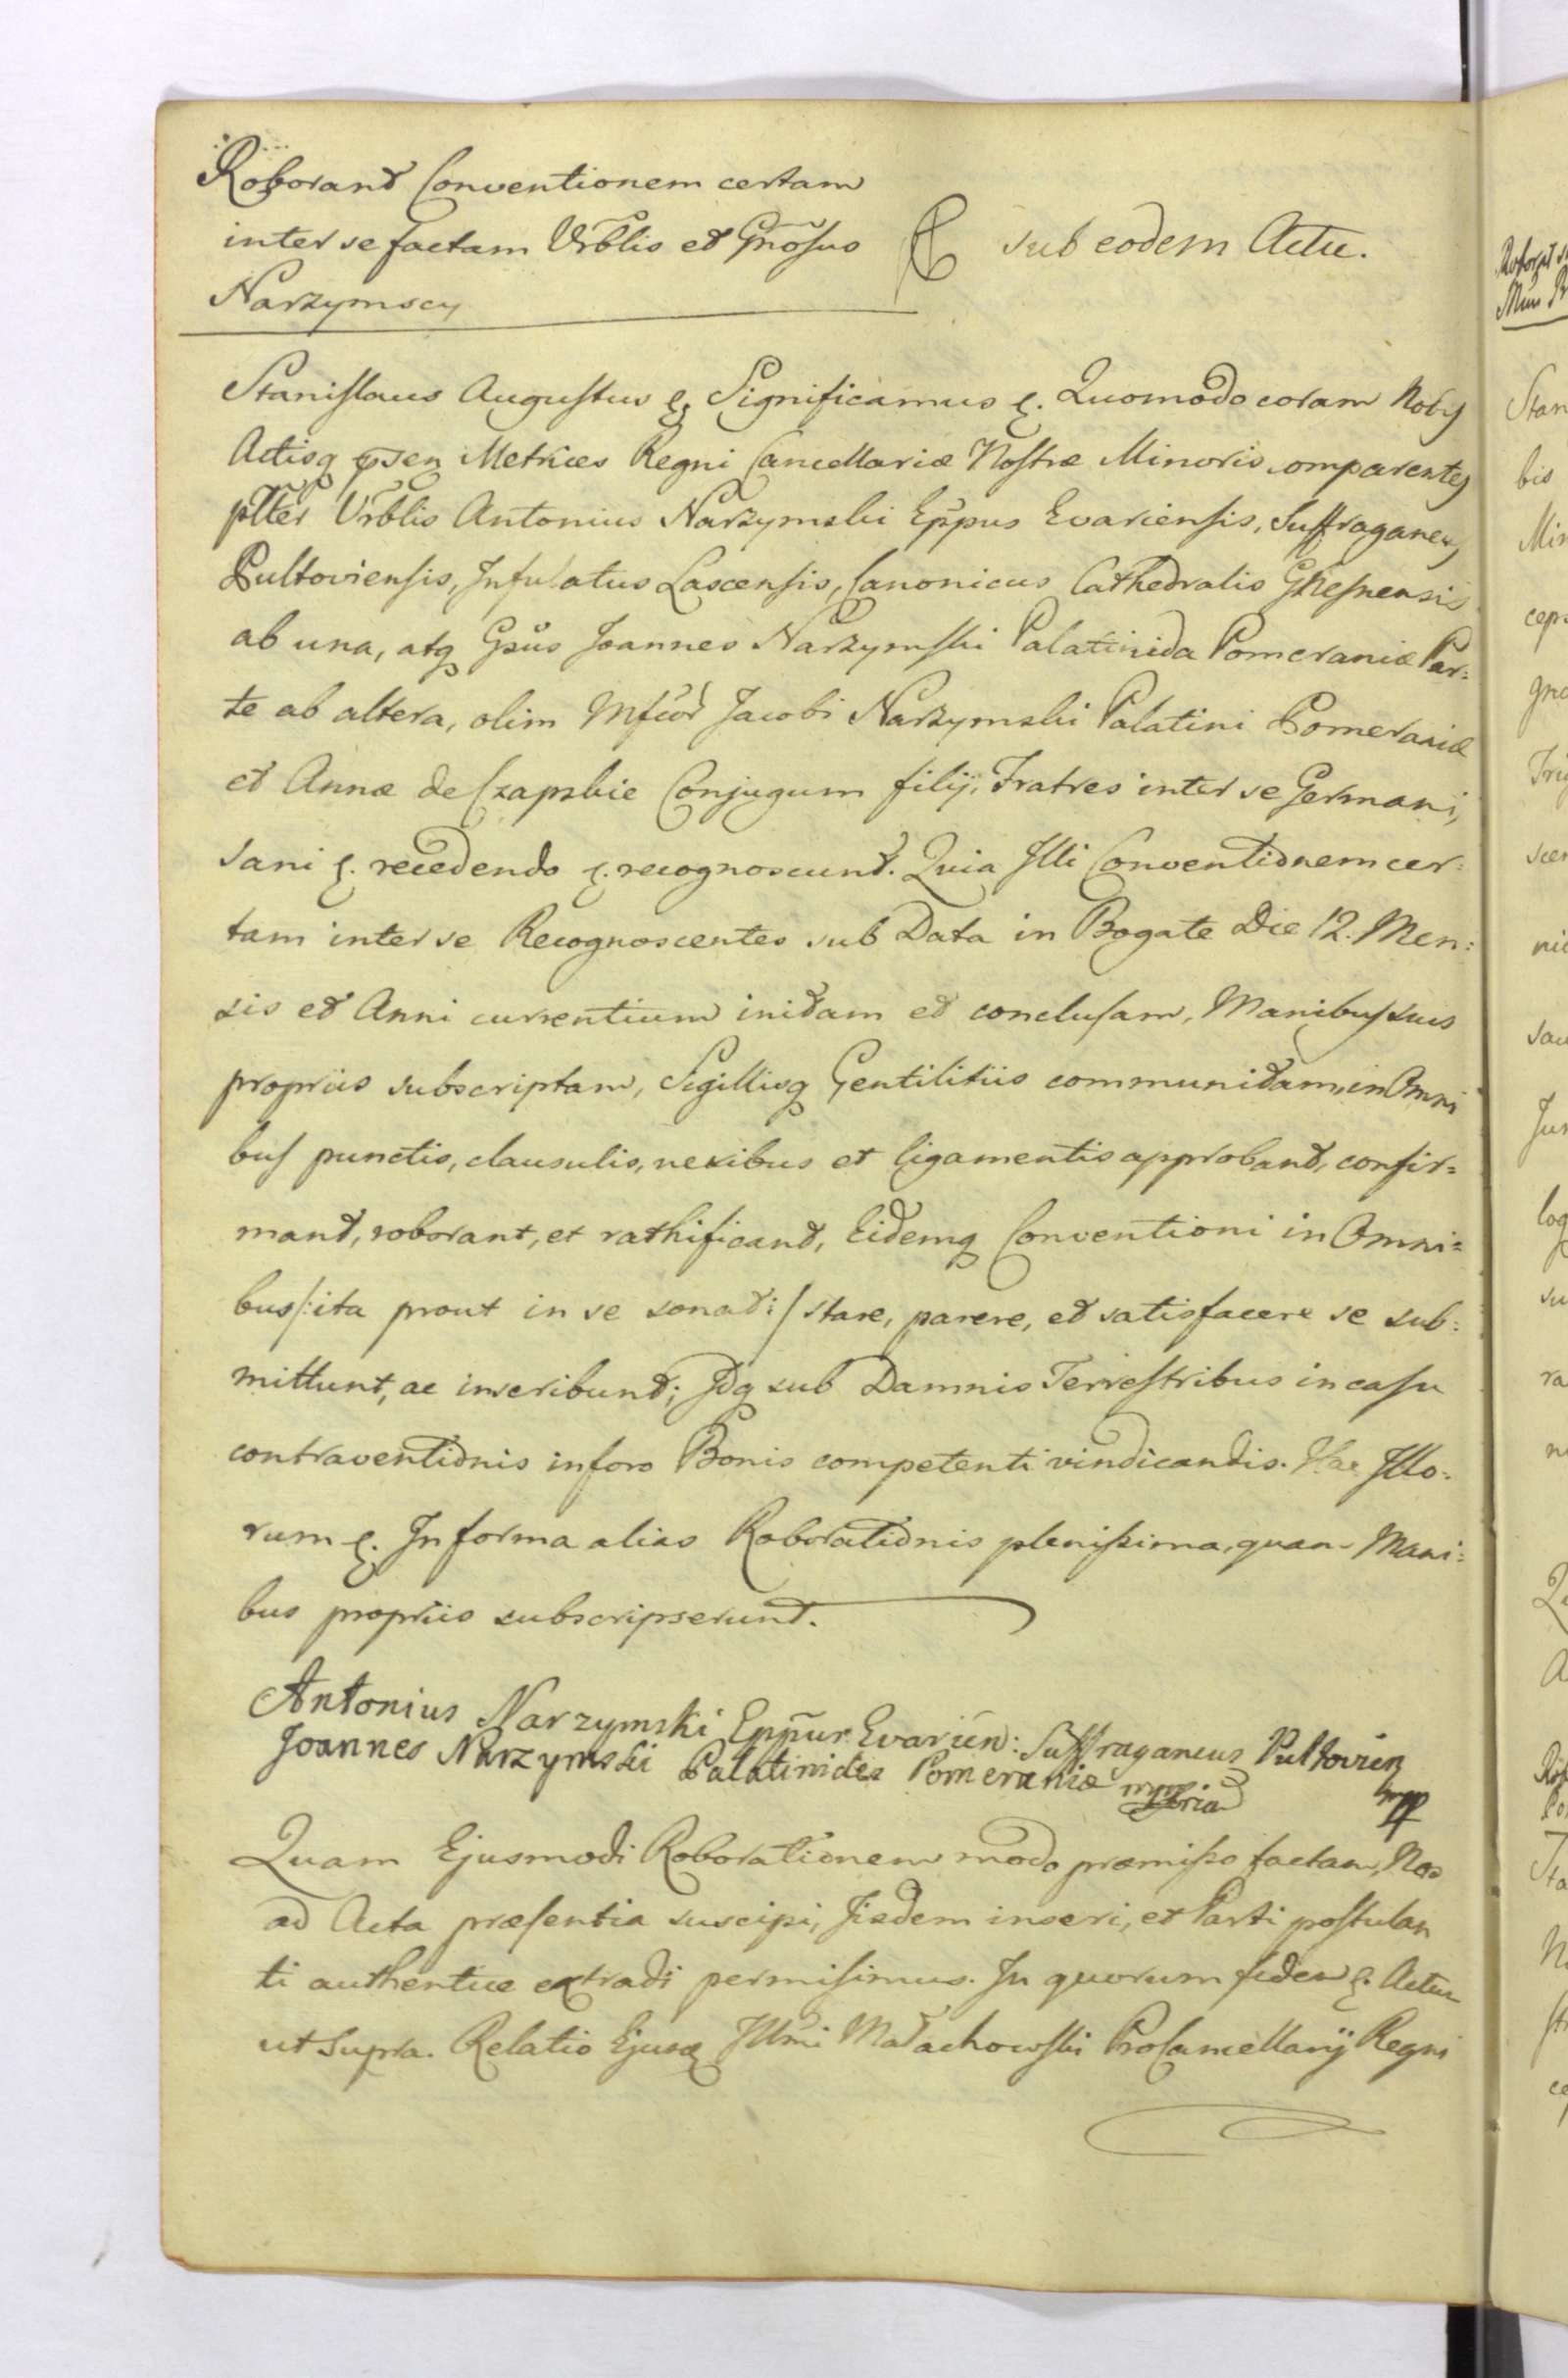 Roborant Conventionem certam
inter se factam Urblis et Gnosus
Narzymscy
sub eodem Actu.
Stanislaus Augustus &. Significamus &. Quomodo coram Nobis
Actisq psen Metrices Regni Cancellariæ Nostræ Minoris comparentes
pltter Urblis Antonius Narzymski Eppus Evariensis, Suffraganeus
Pultoviensis, Infulatus Lascensis, Canonicus Cathedralis Gnesnensis
ab una, atq Gsus Joannes Narzymski Palatinida Pomeraniæ Par:
te ab altera, olim Mfcor Jacobi Narzymski Palatini Pomeraniæ
et Annæ de Czapskie Conjugum filij, Fratres inter se Germani,
sani &. recedendo &. recognoscunt. Quia Illi Conventionem cer:
tam inter se Recognoscentes sub Data in Bogate Die 12. Men:
sis et Anni currentium initam et conclusam, Manibus suis
propriis subscriptam, Sigillisq Gentilitiis communitam, in Omni
bus punctis, clausulis, nexibus et ligamentis approbant, confir=
mant, roborant, et rathificant, Eidemq Conventioni in Omni=
bus /:ita prout in se sonat:/ stare, parere, et satisfacere se sub:
mittunt, ac inscribunt; Idq sub Damnis Terrestribus in casu
contraventionis in foro Bonis competenti vindicandis. Hac Illo:
rum &. In forma alias Roborationis plenissima, quam Mani:
bus propriis subscripserunt.
Antonius Narzymski Eppus Evarien: Suffraganeus Pultovien
mpp
Joannes Narzymski Palatinides Pomeraniæ mppria
Quam Ejusmodi Roborationem modo præmisso factam, Nos
ad Acta præsentia suscipi, Iisdem inseri, et Parti postulan
ti authentice extradi permisimus. In quorum fidem &. Actum
ut supra. Relatio Ejusq Illmi Małachowski ProCancellarij Regni